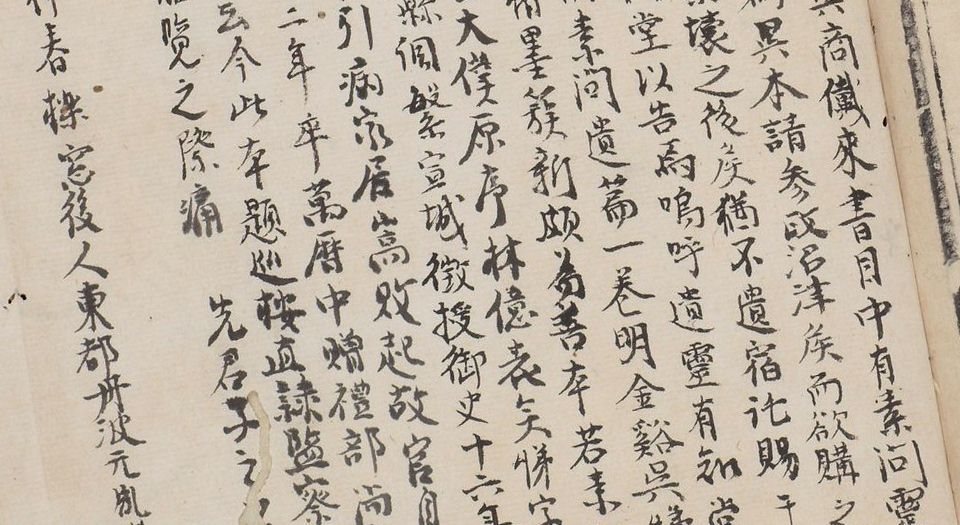 商儎來書目中有素問靈
異本請參政沼津矦而欲購之
壞之後矦猶不遺宿託賜于
堂以告焉嗚呼遺靈有知當
素問遺篇一卷明金谿吳悌
楮墨簇新頗爲善本若素
大僕原序林億表矣悌字
縣佪繁宣城徵授御史十六年
引病家居嵩敗起故官自
二年卒萬曆中贈禮部尚
云今此本題巡按直隷監察
覽之際痛
先君子之
春櫟窓後人東都丹波元胤